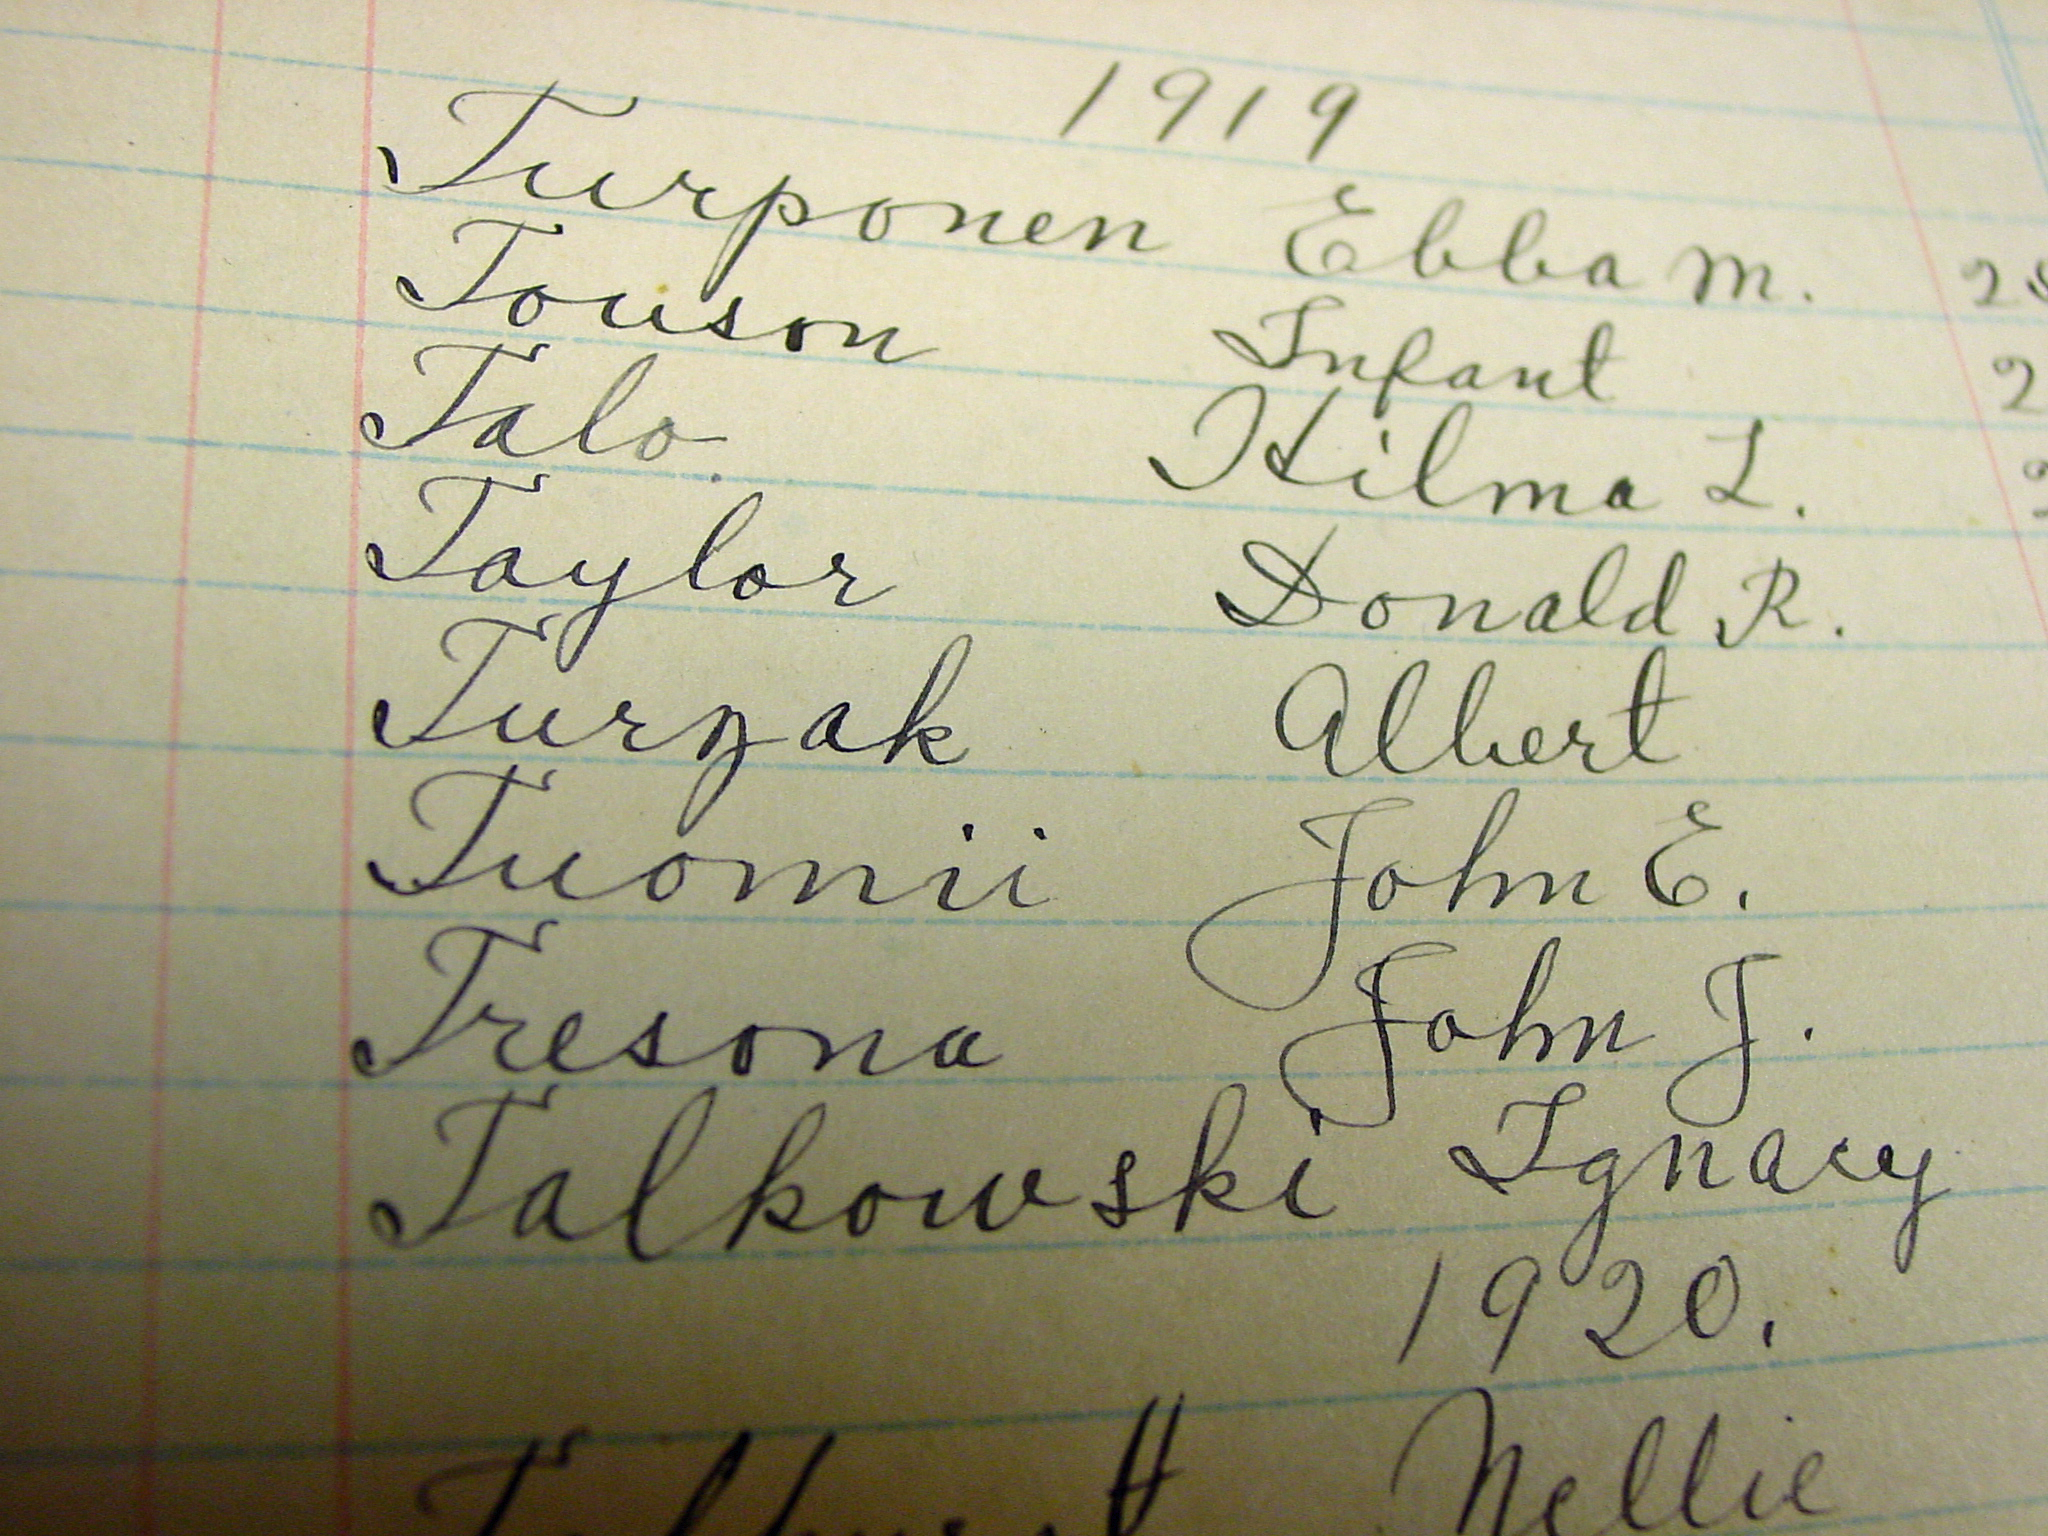 1919
Turponen Ebba M.
Touson Infant
Talo. Hilma L.
Taylor Donald R.
Turzak Albert
Tuomii John E.
Tresona John J.
Talkowski Ignacy
1920.
Nellie